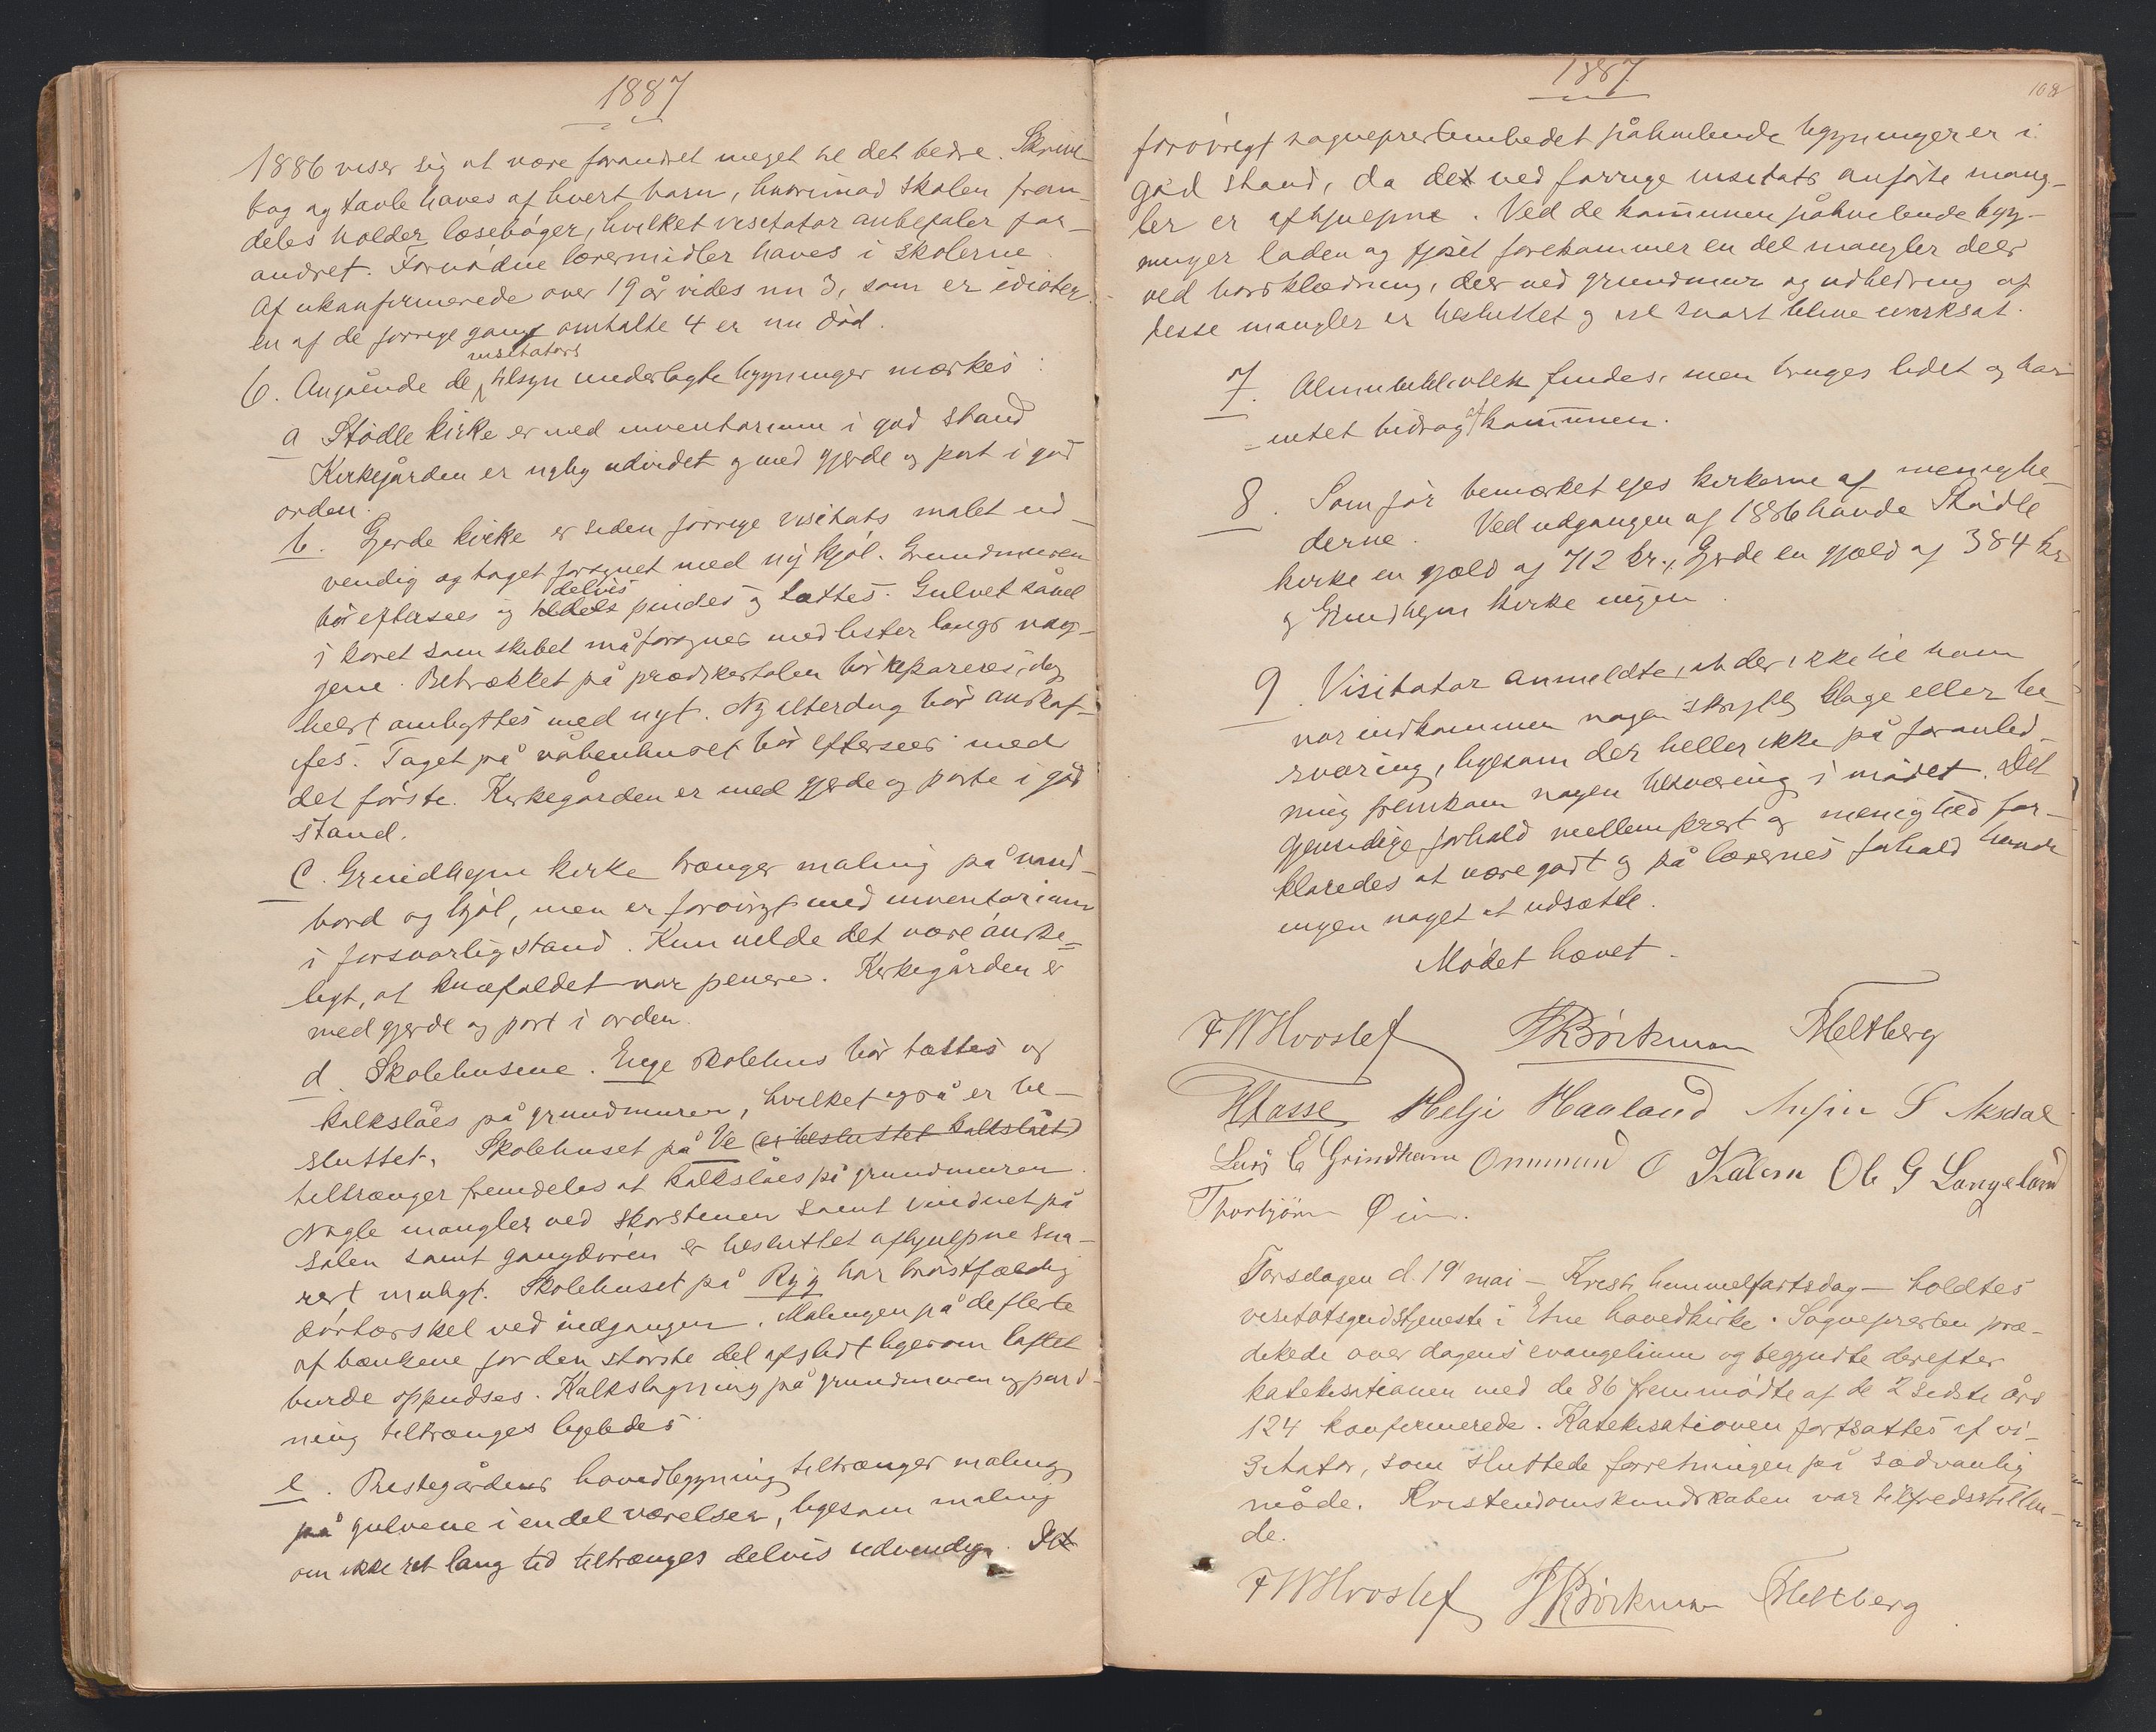 1887
1886 viser sig at være forandret meget til det bedre. Skrive-
bog og tavle haves af hvert barn, hvorimod skolen frem-
deles holder læsebøger, hvilket visitator anbefaler for-
andret. Fornødne læremidler haves i skolerne.
Af ukonfirmerede over 19 år vides nu 3, som er idioter.
en af de forrige gang omtalte 4 er nu død.
visitators
6. Angående de tilsyn underlagte bygninger mærkes:
a Stødle kirke er med inventarium i god stand
Kirkegården er nylig udvidet og med gjerde og port i god
orden.
b. Gjerde kirke er siden forrige visitats malet ud-
vendig og taget forsynet med ny kjøl. Grundmuren
delvis
bør eftersees og tildels pindes og tættes. Gulvet såvel
i koret som skibet må forsynes med lister langs væg-
gene. Betrækket på prædikestolen bør repareres, dog
helst ombyttes med nyt. Ny alterdug bør anskaf-
fes. Taget på våbenhuset bør eftersees med
det første. Kirkegården er med gjerde og porte i god
stand.
c. Grindhejm kirke trænger maling på vand-
bord og kjøl, men er forøvrigt med inventarium
i forsvarlig stand. Kun vilde det være ønske-
ligt, at knæfaldet var penere. Kirkegården er
med gjerde og port i orden.
d. Skolehusene. Enge skolehus bør tættes og
kalkslåes på grundmuren, hvilket også er be-
sluttet. Skolehuset på Ve (er besluttet kalkslået)
tiltrænger fremdeles at kalkslåes på grundmuren.
Nogle mangler ved skorstenen samt vinduet på
salen samt gangdøren er besluttet afhjulpne sna-
rest muligt. Skolehuset på Ryg har brøstfældig
dørtærskel ved indgangen. Malingen på de fleste
af bænkene for den største del afslidt ligesom loftet
burde oppudses. Kalkslagning på grundmuren og pand-
ning tiltrænges ligeledes.
e. Prestegårdens hovedbygning tiltrænger maling
på gulvene i en del værelser, ligesom maling
om ikke ret lang tid tiltrænges delvis udvendig. Det
1887.
108
forøvrigt sogneprestembedet påhvilende bygninger er i
god stand, da det ved forrige visitats anførte mang-
ler er afhjulpne. Ved de kommunen påhvilende byg-
ninger laden og fjøset forekommer en del mangler dels
ved bordklædning, dels ved grundmur og udbedring af
disse mangler er besluttet og vil snart blive iverksat.
7. Almuebibliothek findes, men bruges lidet og har
intet bidrag af kommunen.
8. Som før bemærket ejes kirkerne af menighe-
derne. Ved udgangen af 1886 havde Stødle
kirke en gjæld af 712 kr., Gjerde en gjæld af 384 kr
og Grindhejm kirke ingen.
9. Visitator anmeldte, at der ikke til ham
var indkommen nogen skriftlig klage eller be-
sværing, ligesom der heller ikke på foranled-
ning fremkom nogen besværing i mødet. Det
gjensidige forhold mellem prest og menighed for-
klaredes at være godt og på lærernes forhold havde
ingen noget at udsætte.
Mødet hævet.
F W Hvoslef Børkman Meltberg
Hasse Helje Haaland S Aksdal
Lars E Grindheim Ommund O Kålem Ole G Langeland
Thorbjørn Øien.
Torsdagen d. 19 mai – Kristi himmelfartsdag – holdtes
visitatsgudstjeneste i Etne hovedkirke. Sognepresten præ-
dikede over dagens evangelium og begyndte derefter
katekisationen med de 86 fremmødte af de 2 sidste års
124 konfirmerede. Katekisationen fortsattes af vi-
sitator, som sluttede forretningen på sædvanlig
måde. Kristendomskundskaben var tilfredsstillen-
de.
F W Hvoslef Børkman Meltberg